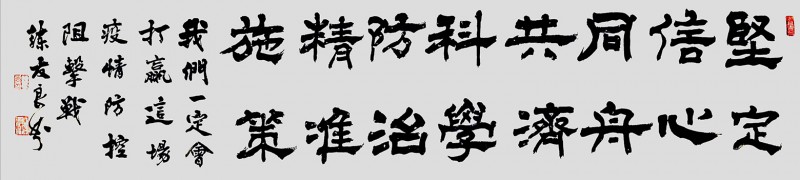 堅定
信心
同舟
共濟
科學
防治
精准
施策
我們一定會
打贏這場
疫情防控
阻擊戰
練友良书